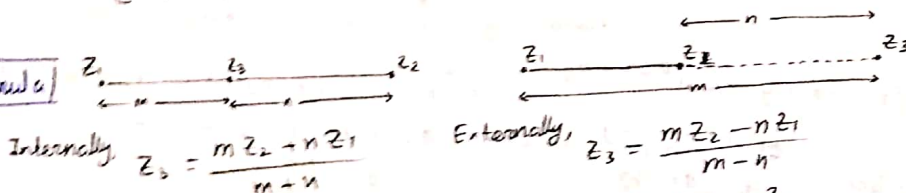 n
Z₁ Z₃ Z₂ Z₁ Z₂ Z₃
m n m
Internally, Z₃ = (m Z₂ + n Z₁) / (m + n) Externally, Z₃ = (m Z₂ - n Z₁) / (m - n)